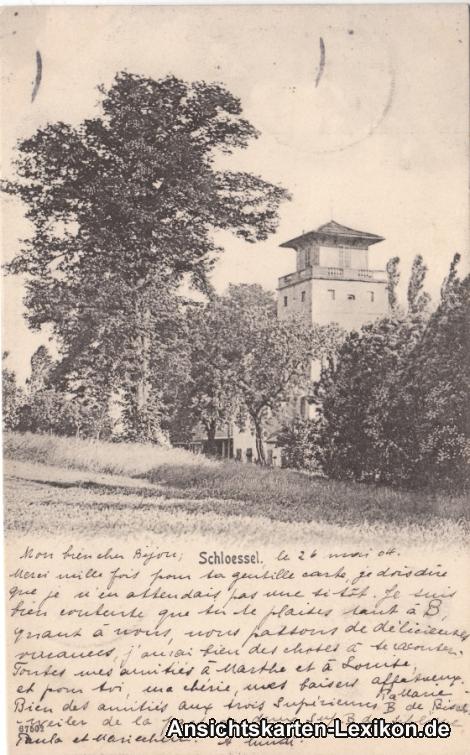 Schloessel.
Mon bien cher Bijou; le 26 mai 04.
Merci mille fois pour ta gentille carte, je dois dire
que je n'en attendais pas une si tôt. Je suis
bien contente que tu te plaises tant à B,
Quant à nous, nous passons de délicieuses
vacances, j'aurai bien des choses à te raconter.
Toutes mes amitiés à Marthe et à Louise,
et pour toi, ma chérie, mes baisers affectueux.
Marie
Bien des amitiés aux trois Supérieurs B de
weiler de la
Paula et
97502
Ansichtskarten-Lexikon.de